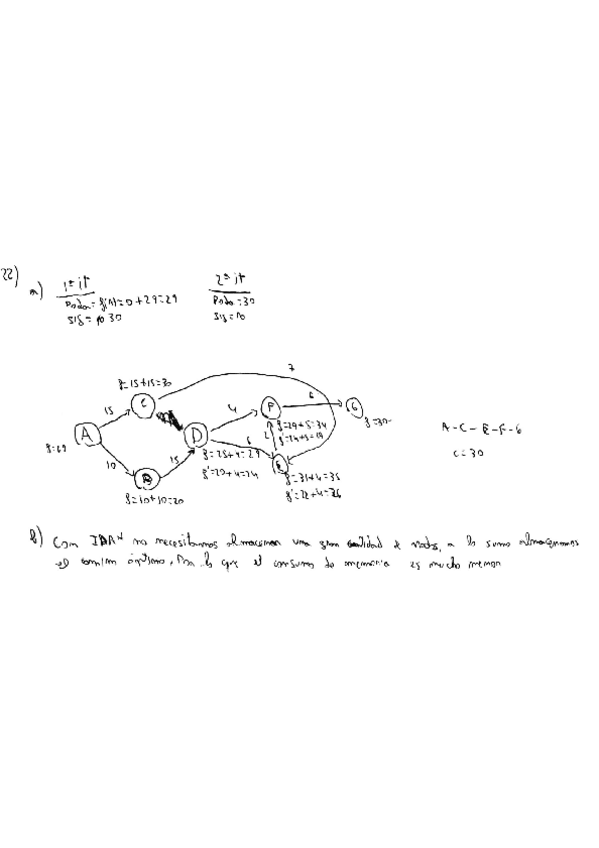 22)
a)
1ª it
Poda = f(A)=0+29=29
sig = 30
2ª it
Poda = 30
sig = ∞
7
f=15+15=30
C
15
A
f=29
10
B
f=10+10=20
15
D
f=25+4=29
f'=20+4=24
4
6
F
f=29+5=34
f'=24+5=29
2
E
f=31+4=35
f'=22+4=26
6
G
f=30
A-C-E-F-G
C=30
b) Con IDA* no necesitamos almacenar una gran cantidad de nodos, a lo sumo almacenamos
el camino óptimo, Por lo que el consumo de memoria es mucho menor